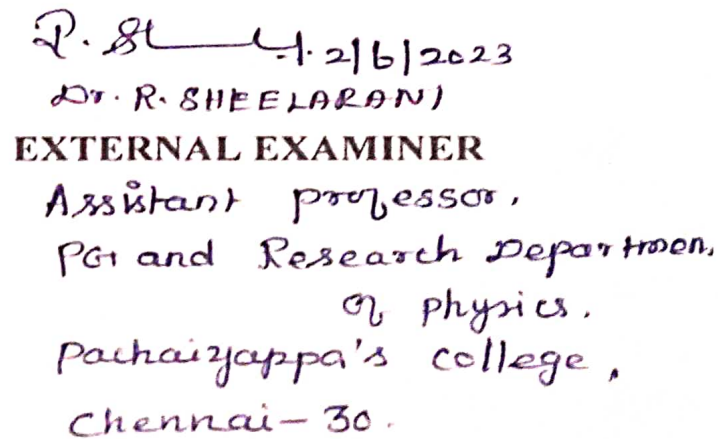 2/6/2023
Dr. R. SHEELARANI
EXTERNAL EXAMINER
Assistant professor,
PG and Research Departmen,
of physics.
Pachaiyappa's college,
Chennai - 30.